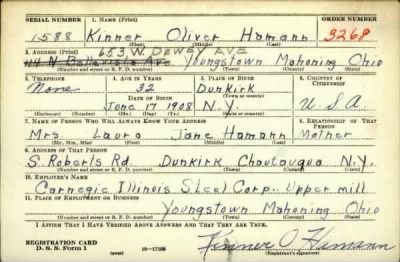 SERIAL NUMBER 1. NAME (Print) ORDER NUMBER
1588 Kinner Oliver Hamann 3268
653 W. DEWEY AVE
2. ADDRESS (Print)
Youngstown Mahoning Ohio
(Number and street or R. F. D. number) (Town) (County) (State)
3. TELEPHONE 4. AGE IN YEARS 5. PLACE OF BIRTH 6. COUNTRY OF CITIZENSHIP
None 32 Dunkirk
DATE OF BIRTH (Town or county)
June 17 1908 N.Y. U.S.A
7. NAME OF PERSON WHO WILL ALWAYS KNOW YOUR ADDRESS 8. RELATIONSHIP OF THAT PERSON
Mrs Laura Jane Hamann Mother
(Mr., Mrs., Miss) (First) (Middle) (Last)
9. ADDRESS OF THAT PERSON
S. Roberts Rd. Dunkirk Chautauqua N.Y.
(Number and street or R. F. D. number) (Town) (County) (State)
10. EMPLOYER'S NAME
Carnegie Illinois Steel Corp. Upper mill
11. PLACE OF EMPLOYMENT OR BUSINESS
Youngstown Mahoning Ohio
(Number and street or R. F. D. number) (Town) (County) (State)
I AFFIRM THAT I HAVE VERIFIED ABOVE ANSWERS AND THAT THEY ARE TRUE.
REGISTRATION CARD
D. S. S. Form 1 (over) Kinner O Hamann